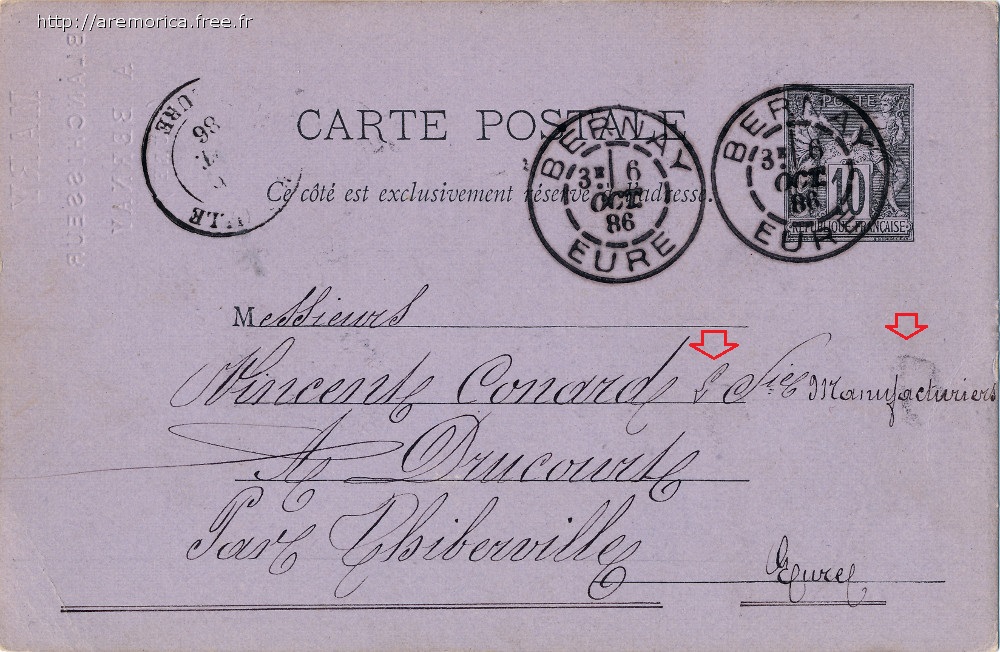 http://aremorica.free.fr
CARTE POSTALE
Ce côté est exclusivement réservé à l'adresse.
BERNAY
3E 6
OCT.
86
EURE
BERNAY
3E 6
OCT.
86
EURE
POSTE
10
REPUBLIQUE FRANÇAISE
EURE
86
Messieurs
Vincent Conard & Fils Manufacturiers
A Drucourt
Par Thiberville
Eure